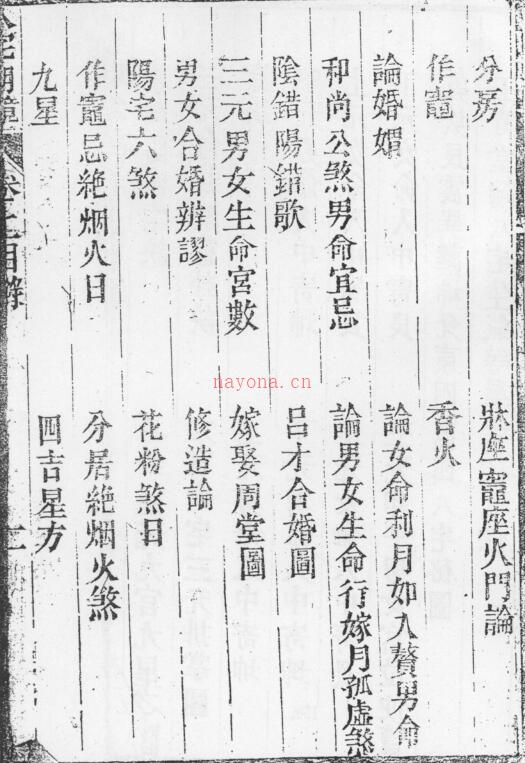 分房 牀座竈座火門論
作竈 香火
論婚姻 論女命利月如入贅男命
和尚公煞男命宜忌 論男女生命行嫁月孤虛煞
陰錯陽錯歌 呂才合婚圖
三元男女生命宮數 嫁娶周堂圖
男女合婚辨謬 修造論
陽宅六煞 花粉煞日
作竈忌絶烟火日 分居絶烟火煞
九星 四吉星方
nayona.cn